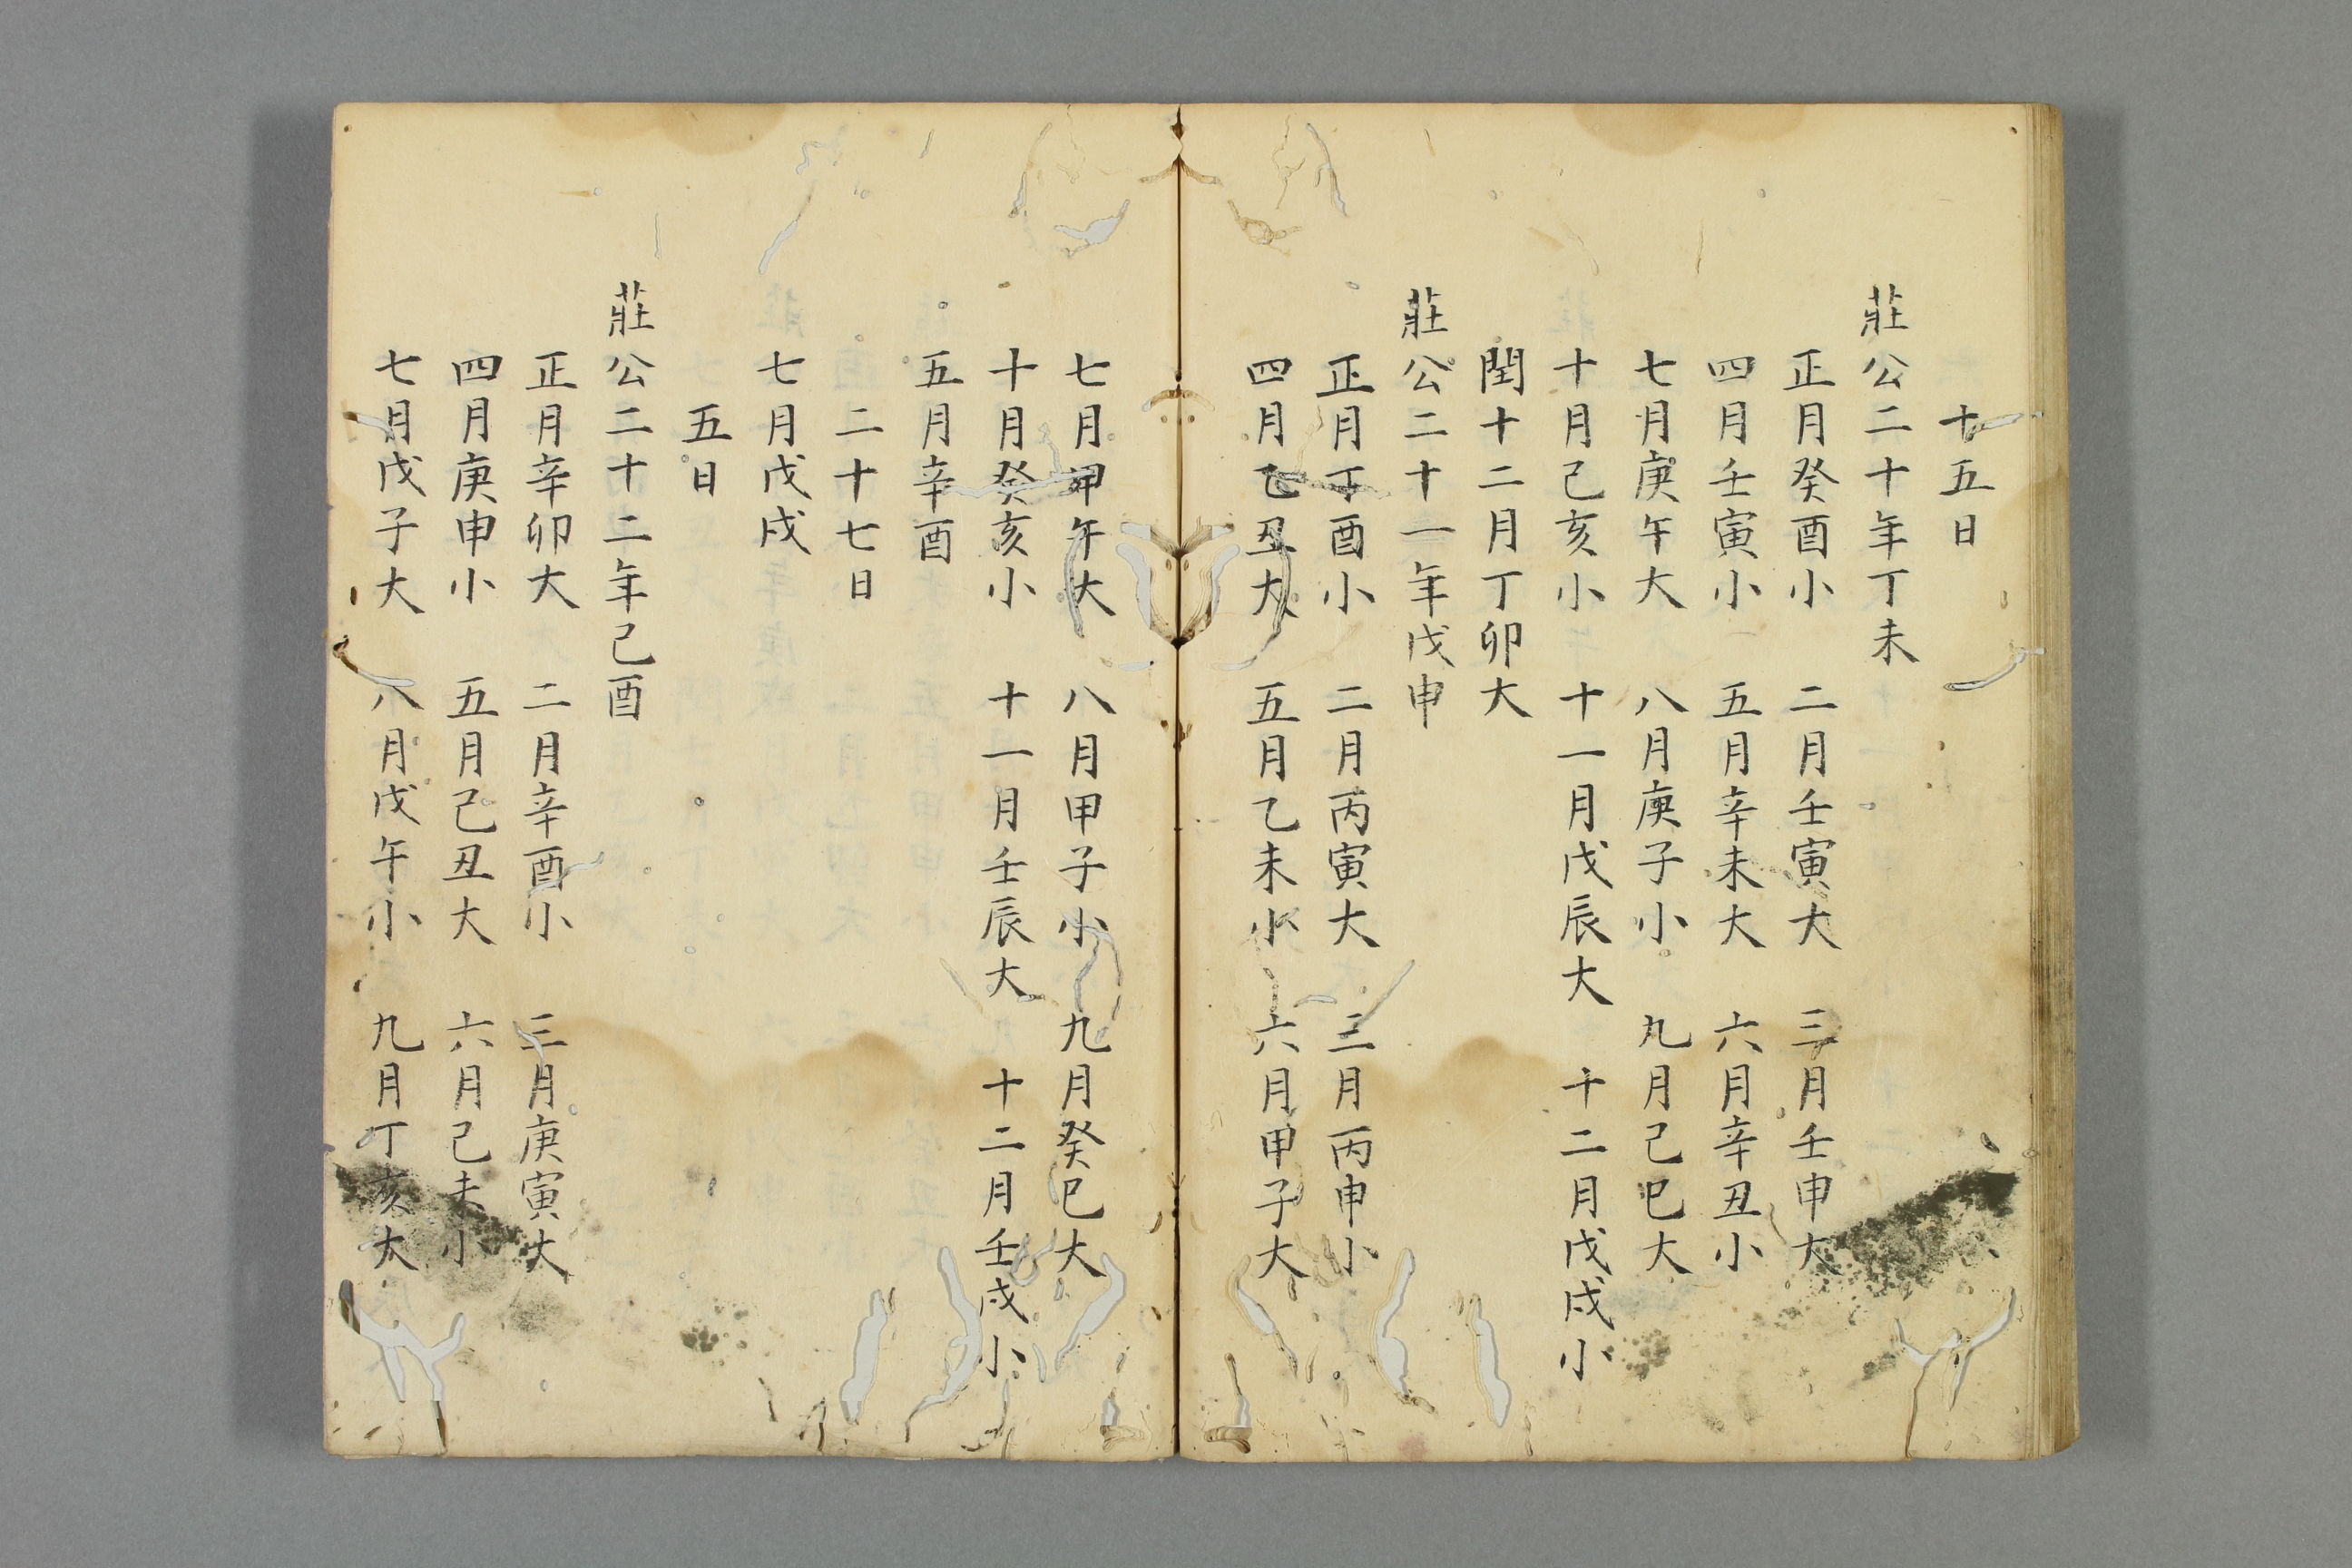 十五日
莊公二十年丁未
正月癸酉小　二月壬寅大　三月壬申大
四月壬寅小　五月辛未大　六月辛丑小
七月庚午大　八月庚子小　九月己巳大
十月己亥小　十一月戊辰大　十二月戊戌小
閏十二月丁卯大
莊公二十一年戊申
正月丁酉小　二月丙寅大　三月丙申小
四月乙丑大　五月乙未小　六月甲子大
七月甲午大　八月甲子小　九月癸巳大
十月癸亥小　十一月壬辰大　十二月壬戌小
五月辛酉
二十七日
七月戊戌
五日
莊公二十二年己酉
正月辛卯大　二月辛酉小　三月庚寅大
四月庚申小　五月己丑大　六月己未小
七月戊子大　八月戊午小　九月丁亥大